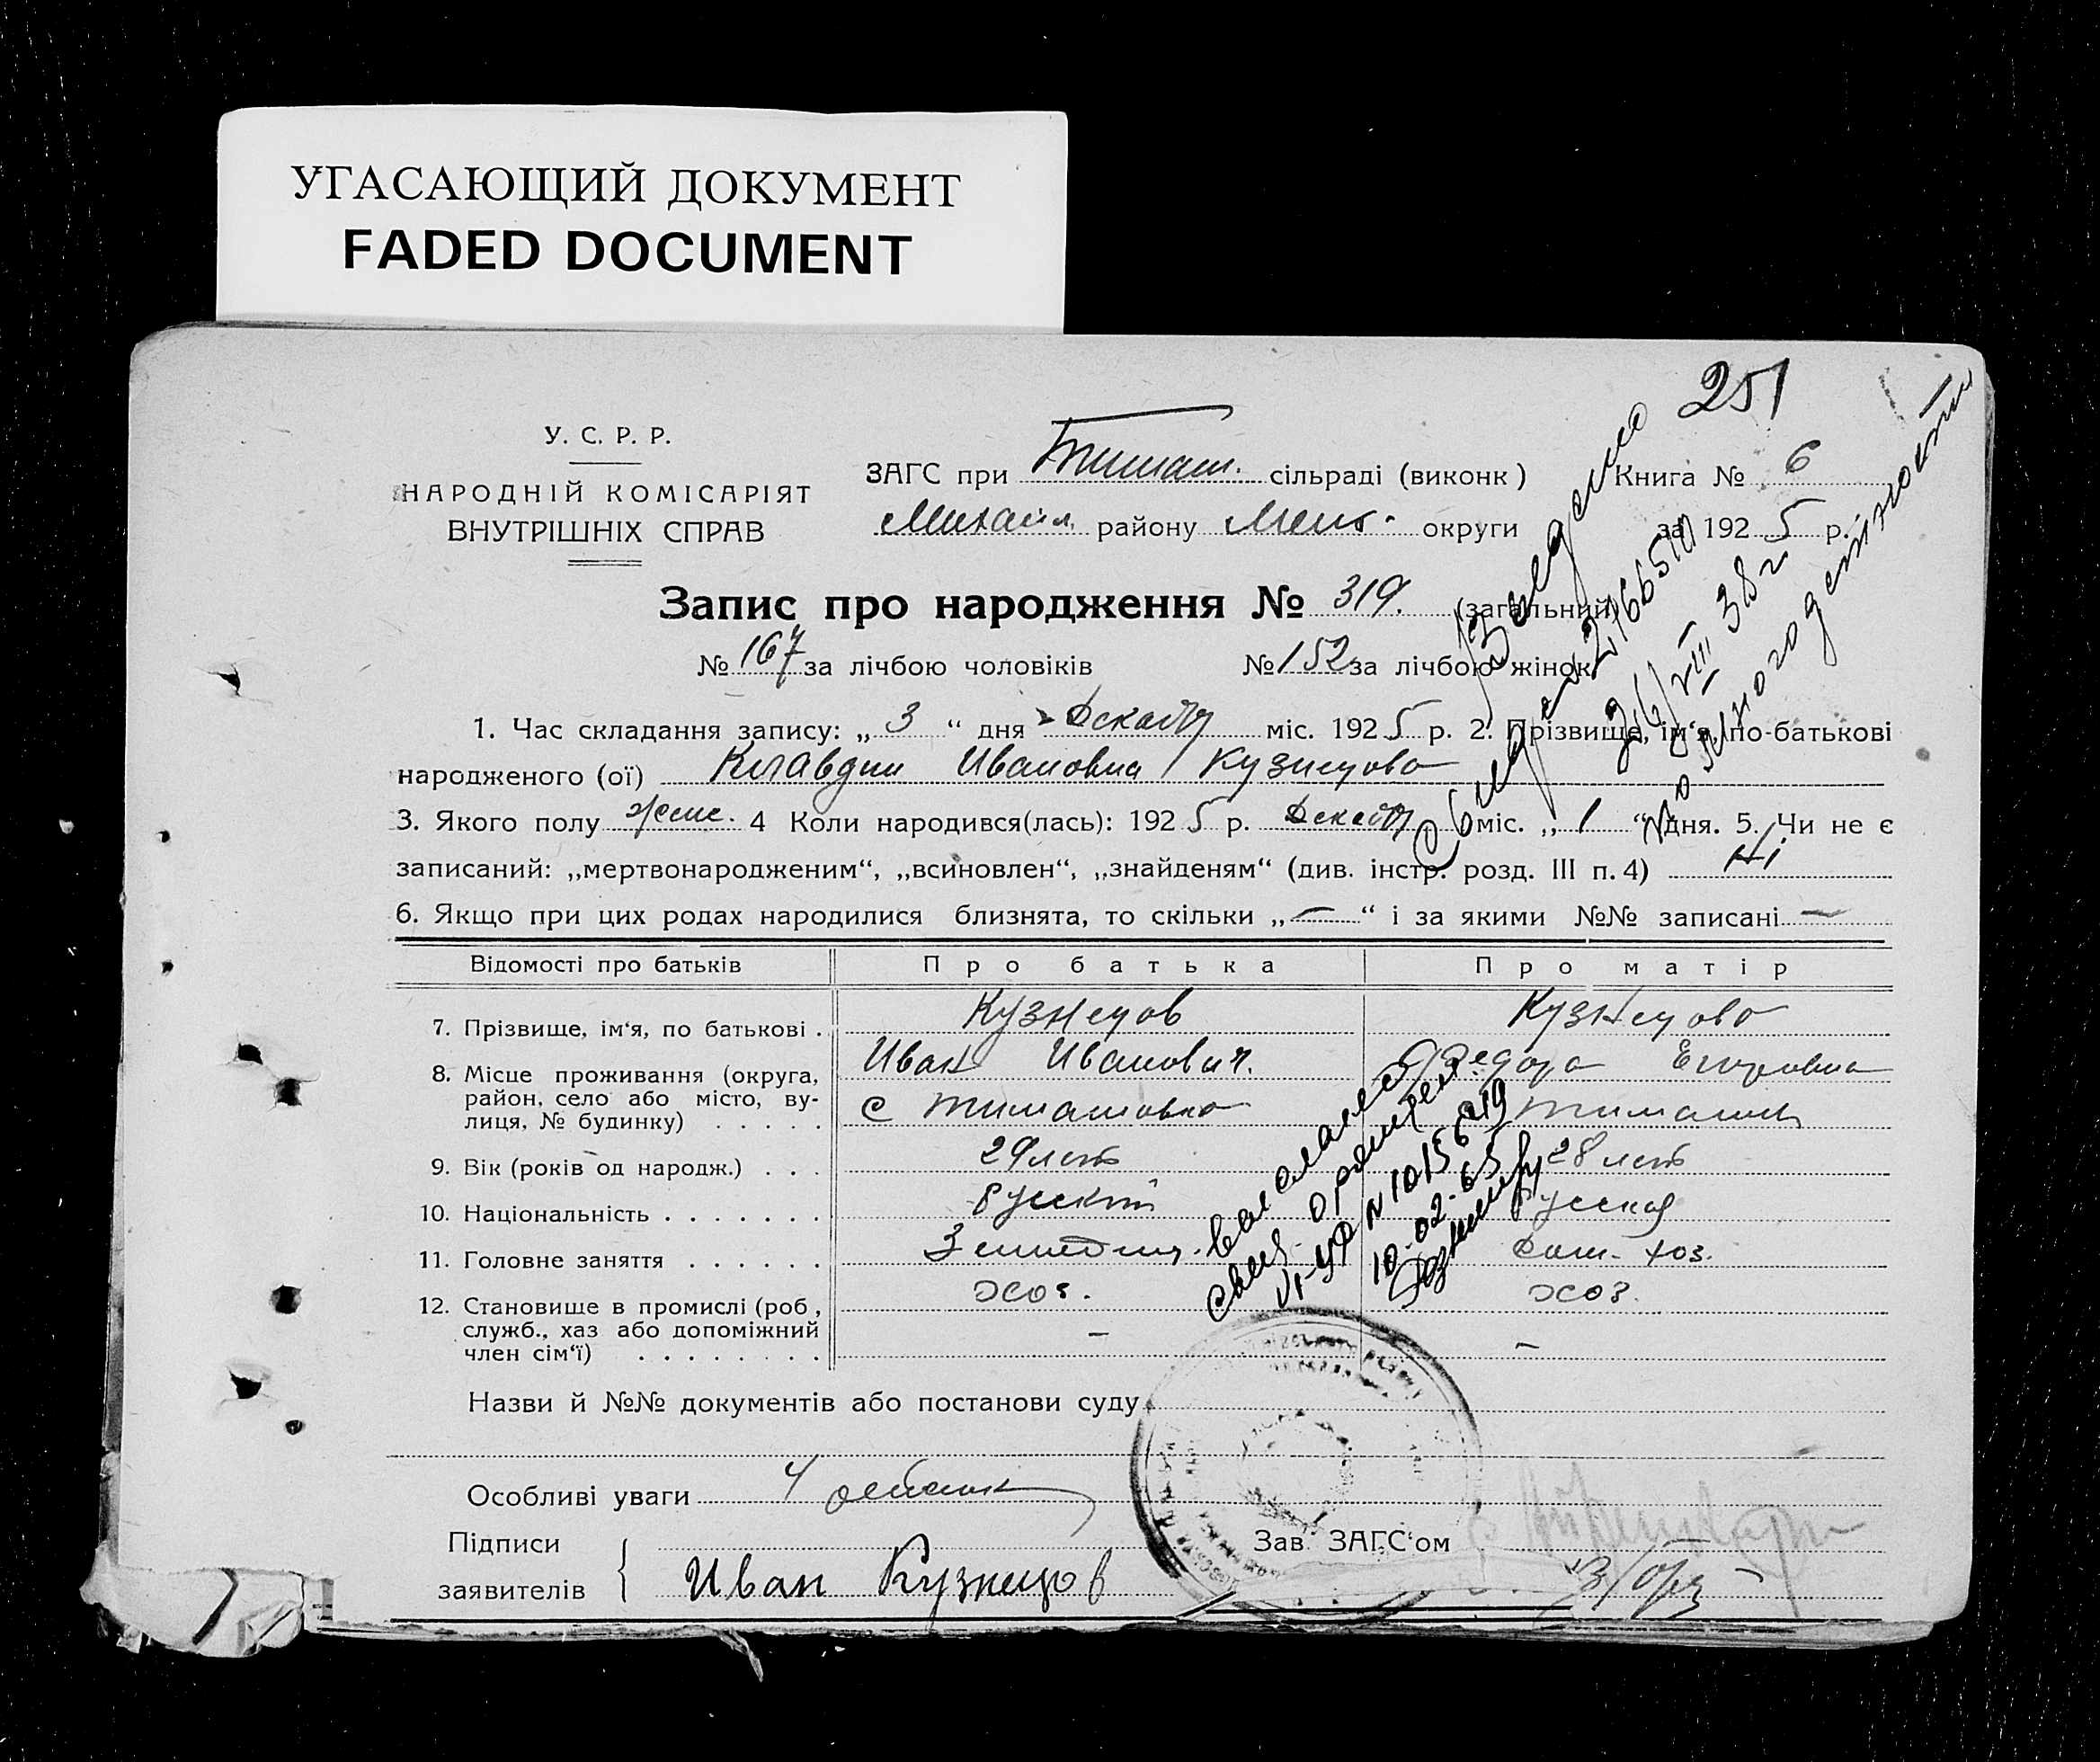 УГАСАЮЩИЙ ДОКУМЕНТ
FADED DOCUMENT
251
У. С. Р. Р.
НАРОДНІЙ КОМІСАРІЯТ
ВНУТРІШНІХ СПРАВ
ЗАГС при Тимаш. сільраді (виконк ) Книга № 6
Михайл. району Мел. округи за 1925 р.
Запис про народження № 319. (загальний)
№ 167 за лічбою чоловіків № 152 за лічбою жінок
1. Час складання запису: „ 3 “ дня Декабр міс. 1925 р. 2. Прізвище, ім‘я, по-батькові
народженого (ої) Клавдии Ивановна Кузнецова
3. Якого полу женс. 4 Коли народився(лась): 1925 р. Декабр міс. „ 1 “ дня. 5. Чи не є
записаний: „мертвонародженим“, „всиновлен“, „знайденям“ (див. інстр. розд. III п. 4) Ні
6. Якщо при цих родах народилися близнята, то скільки „ — “ і за якими №№ записані —
Відомості про батьків Про батька Про матір
7. Прізвище, ім‘я, по батькові . Кузнецов Кузнецова
Иван Иванович. Федора Егоровна
8. Місце проживання (округа,
район, село або місто, ву-
лиця, № будинку) . . . . . с Тимашовка Тимашовк
9. Вік (років од народж.) . . . 29 лет 28 лет
10. Національність . . . . . . . Русский Русская
11. Головне заняття . . . . . . Дом. хоз.
12. Становище в промислі (роб ,
служб., хаз або допоміжний
член сім‘ї) . . . . . . . . хоз. хоз.
— —
Назви й №№ документів або постанови суду
Особливі уваги 4
Підписи
заявителів Иван Кузнецов
Зав. ЗАГС‘ом
Взыдано
2766510
26/VIII 38 г
по многодетности
10.02.65